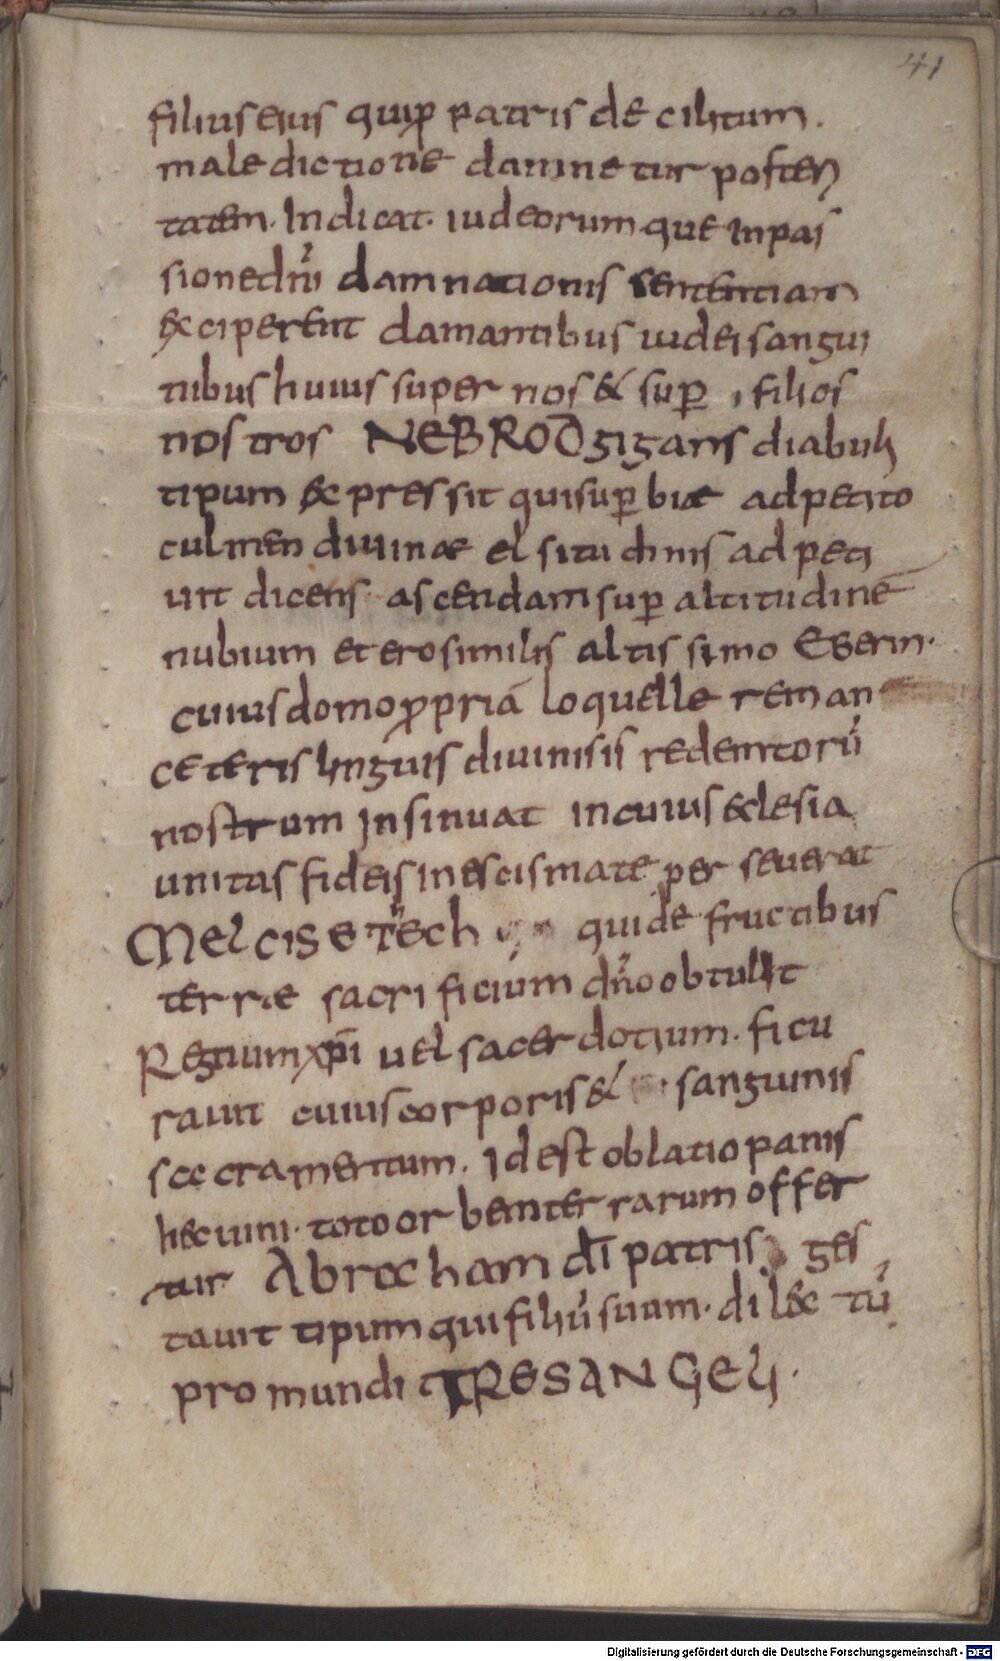 41
filius eius quip patris de cilitum.
maledictione damnetur posteri
tatem. Indicat. iudeorum que inpas
sione dñi damnationis sententiam
exciperent damantibus iudei sangui
nibus huius super nos & sup filios
nostros NEBROD gigans diabuli
tipum expressit qui superbiae adpetito
culmen divinae elsitudinis adpeti
vit dicens. ascendam super altitudinē
nubium et ero similis altissimo Eberin.
cuius domo propriā loquelle reman
ceteris linguis divinisis redemtorū
nostrum insinuat in cuius eclesia
unitas fidei sine scismate perseverat
Melcisetech qui de fructibus
terrae sacrificium dño obtulit
Regium xp̄i vel sacerdotium. ficu
ravit cuius corporis & sanguinis
sacramentum. Id est oblatio panis
hec vini. toto orbem terrarum offer
tur Abracham dī patris ges
tavit tipum qui filiū suum. dilectū
pro mundi TRES ANGELI.
Digitalisierung gefördert durch die Deutsche Forschungsgemeinschaft - DFG